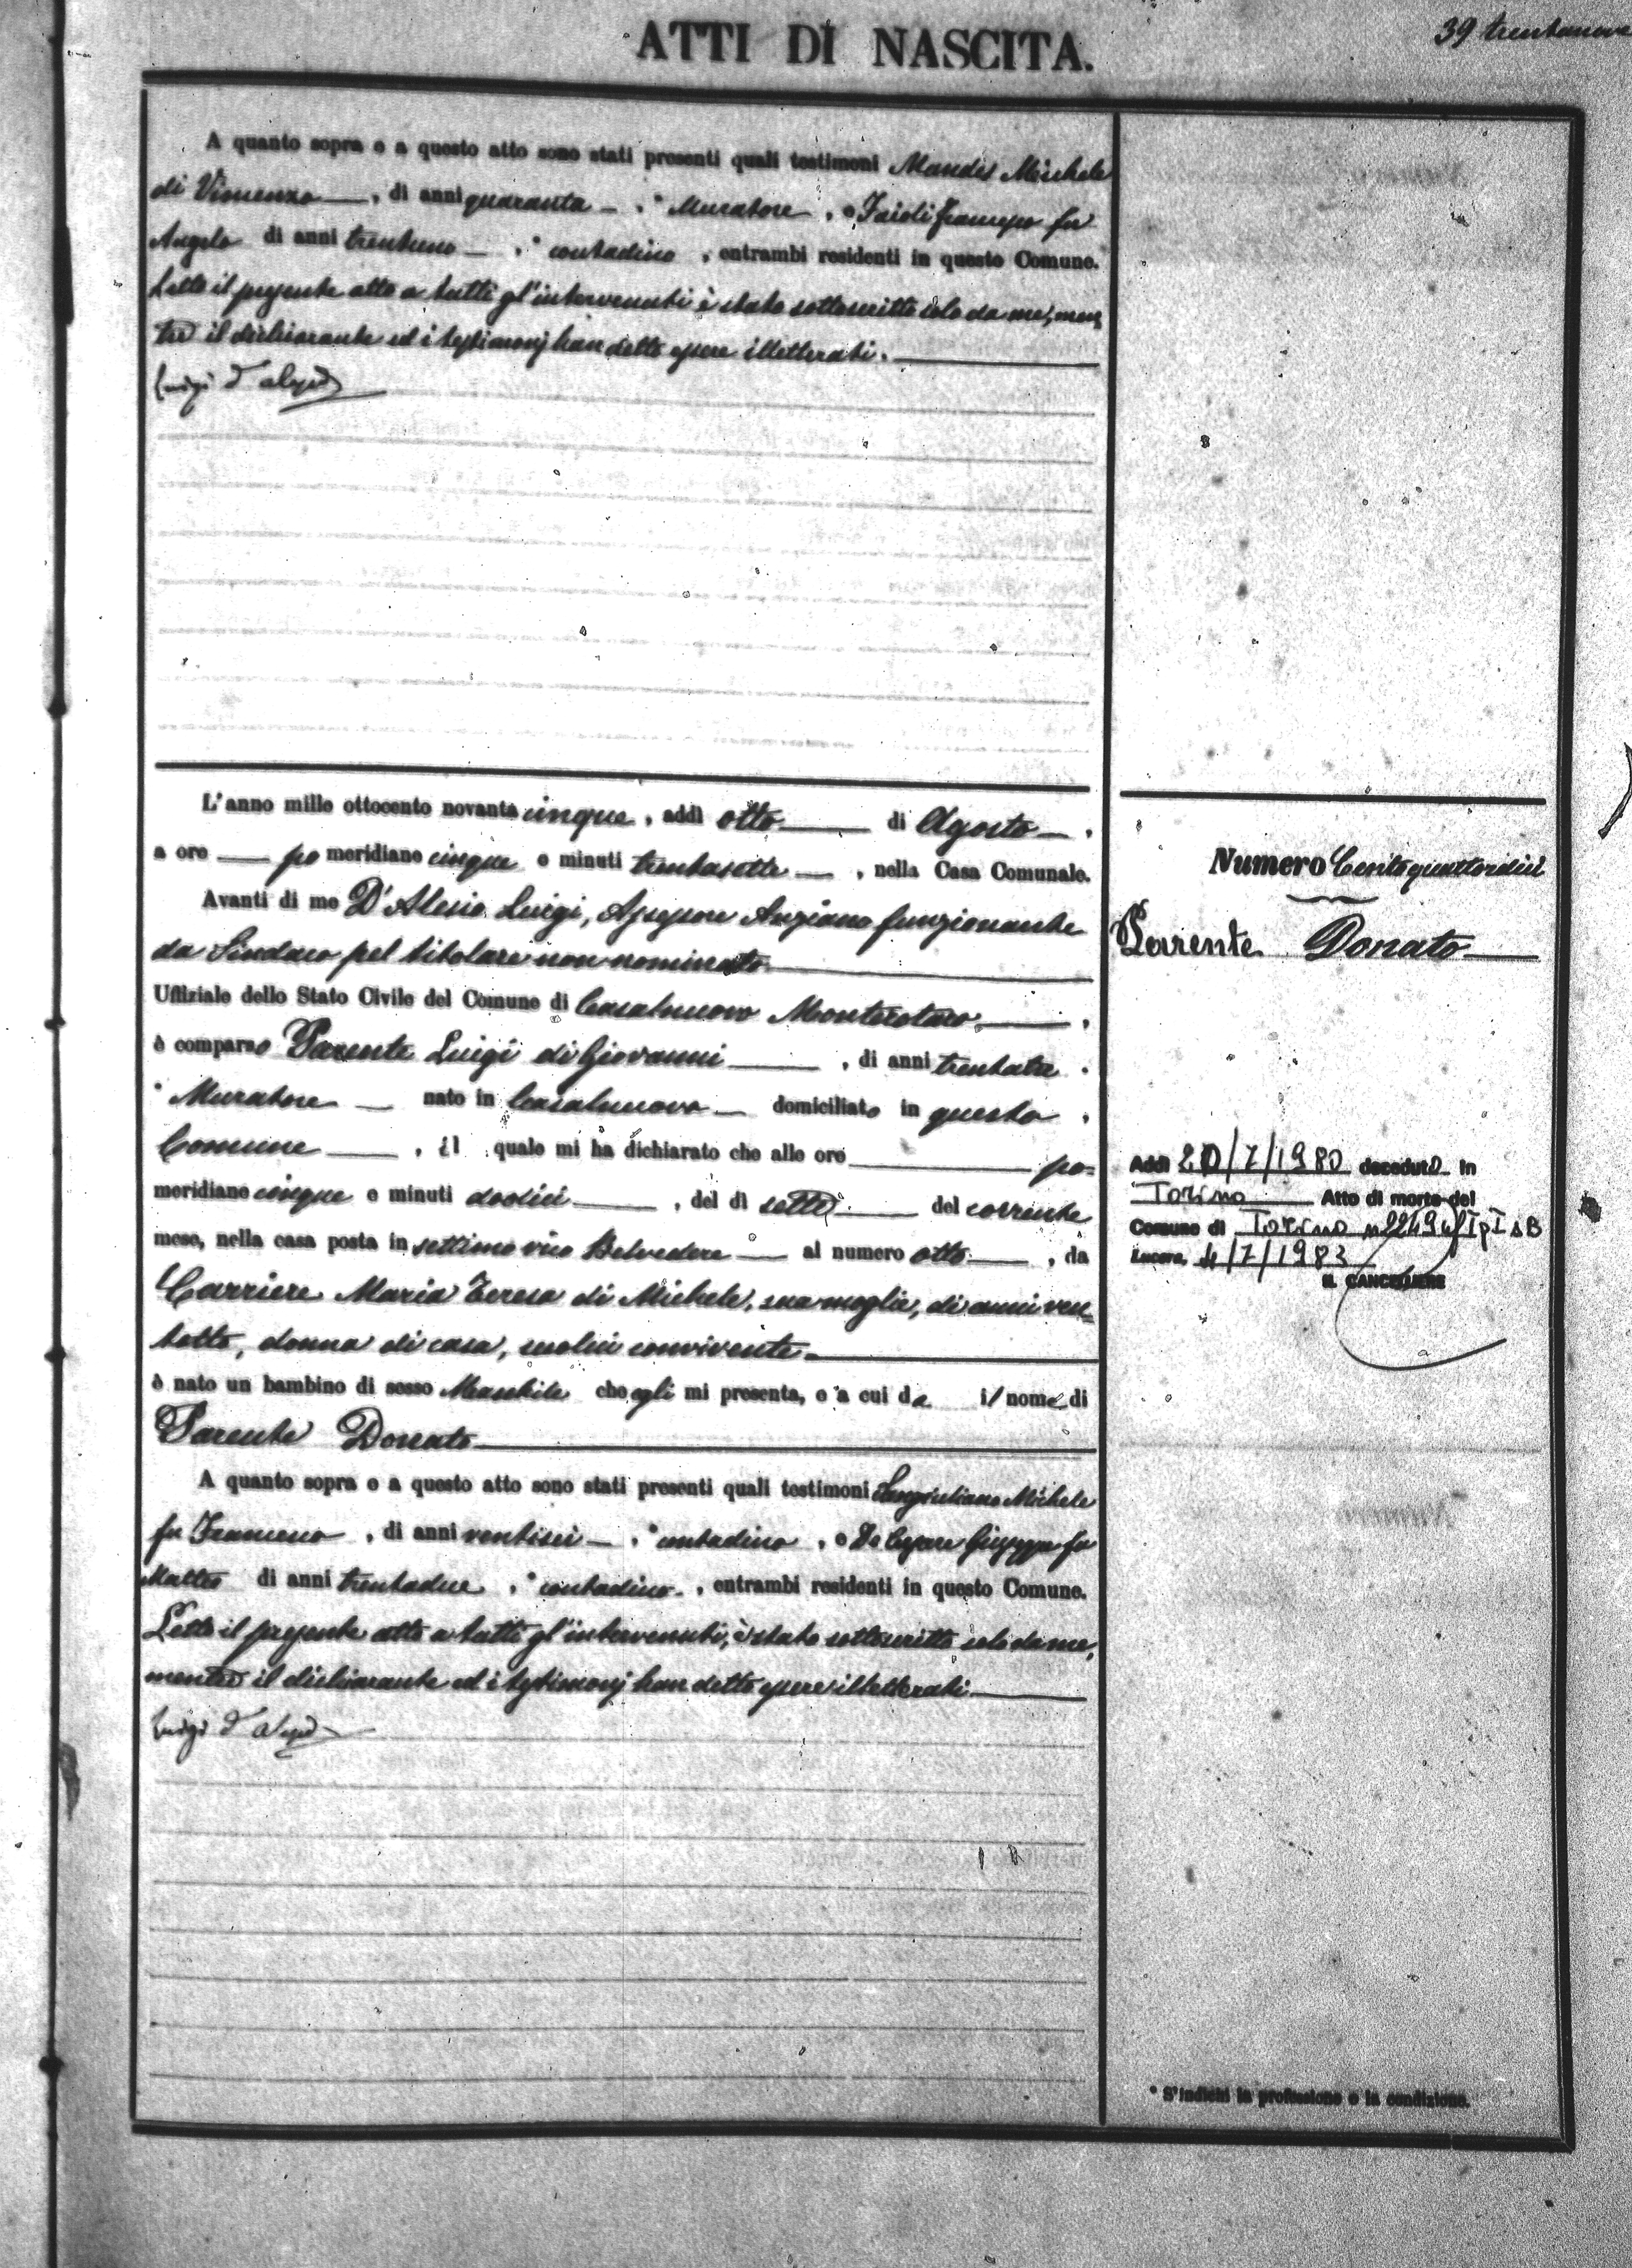 39 trentanove
ATTI DI NASCITA.
A quanto sopra e a questo atto sono stati presenti quali testimoni Mandes Michele
di Vincenzo —, di anni quaranta —, * Muratore, e Faioli Francesco fu
Angelo di anni trentuno —, * contadino, entrambi residenti in questo Comune.
Letto il presente atto a tutti gl'intervenuti è stato sottoscritto solo da me, men
tre il dichiarante ed i testimonj han detto essere illetterati.
Luigi D'Alesio
L'anno mille ottocento novantacinque, addì otto di Agosto —,
a ore — po meridiane cinque e minuti trentasette —, nella Casa Comunale.
Avanti di me D'Alesio Luigi, Assessore Anziano funzionante
da Sindaco pel titolare non nominato
Uffiziale dello Stato Civile del Comune di Casalnuovo Monterotaro,
è comparso Parente Luigi di Giovanni, di anni trentatre,
* Muratore — nato in Casalnuovo — domiciliato in questo
Comune, il quale mi ha dichiarato che alle ore po=
meridiane cinque e minuti dodici, del dì sette del corrente
mese, nella casa posta in settimo vico Belvedere — al numero otto, da
Carriere Maria Teresa di Michele, sua moglie, di anni ven=
totto, donna di casa, seco lui convivente
è nato un bambino di sesso Maschile che egli mi presenta, e a cui da il nome di
Parente Donato
A quanto sopra e a questo atto sono stati presenti quali testimoni Sangiuliano Michele
fu Francesco, di anni ventisei —, * contadino, e De Cesare Giuseppe fu
Matteo di anni trentadue, * contadino, entrambi residenti in questo Comune.
Letto il presente atto a tutti gl'intervenuti, è stato sottoscritto solo da me,
mentre il dichiarante ed i testimonj han detto essere illetterati
Luigi D'Alesio
Numero Centoquattordici
Parente Donato
Addì 20/7/1980 deceduto in
Torino Atto di morte del
Comune di Torino n 2249 I B
Lucera, 4/7/1983
IL CANCELLIERE
* S'indichi la professione o la condizione.